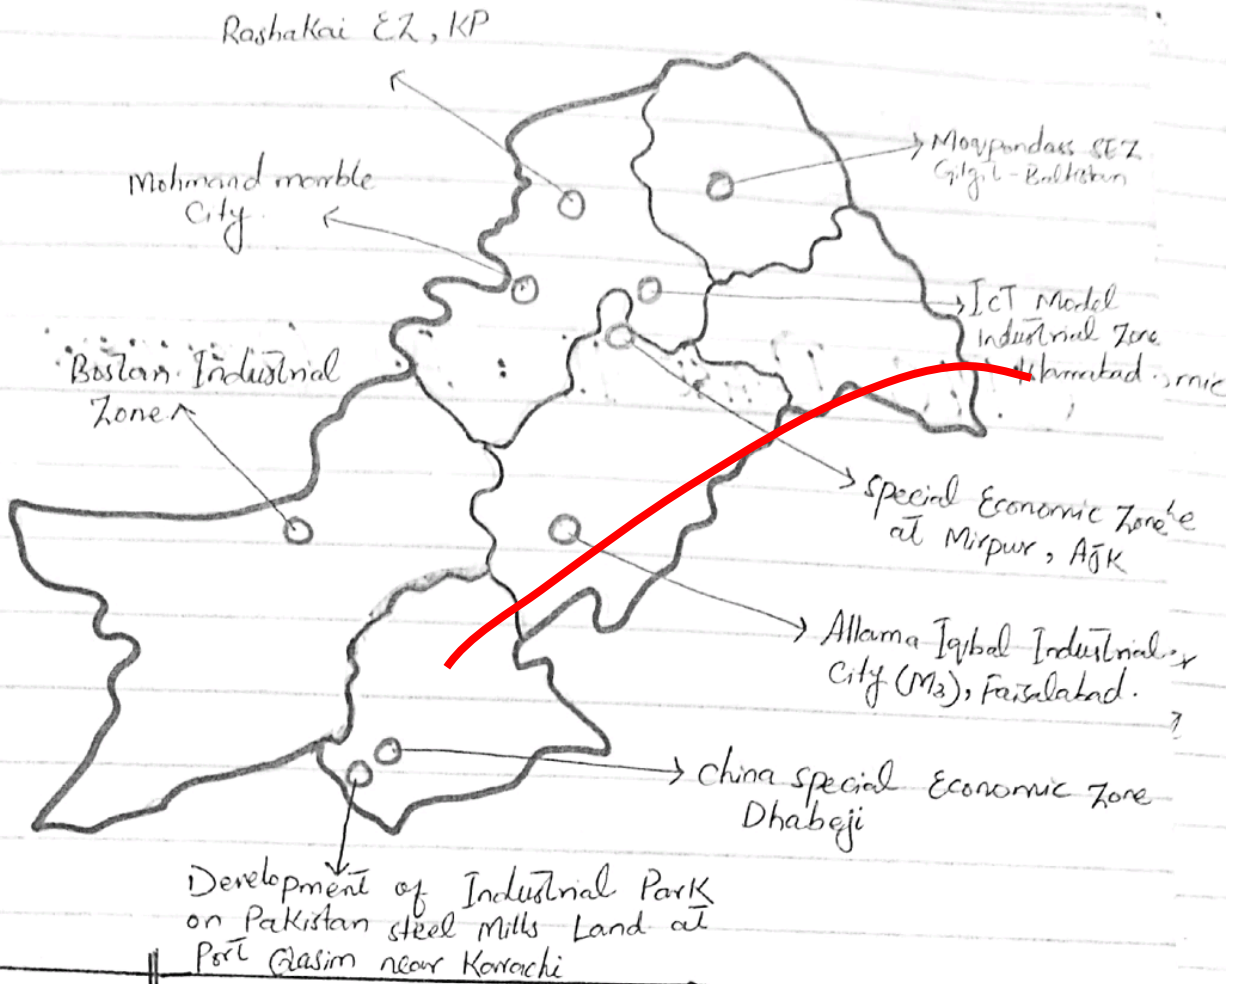 Rashakai EZ, KP
Moqpondass SEZ
Gilgit-Baltistan
Mohmand marble
City
ICT Model
Industrial Zone
Islamabad
Bostan Industrial
Zone
Special Economic Zone
at Mirpur, AJK
Allama Iqbal Industrial
City (M3), Faisalabad.
China Special Economic Zone
Dhabeji
Development of Industrial Park
on Pakistan steel Mills Land at
Port Qasim near Karachi